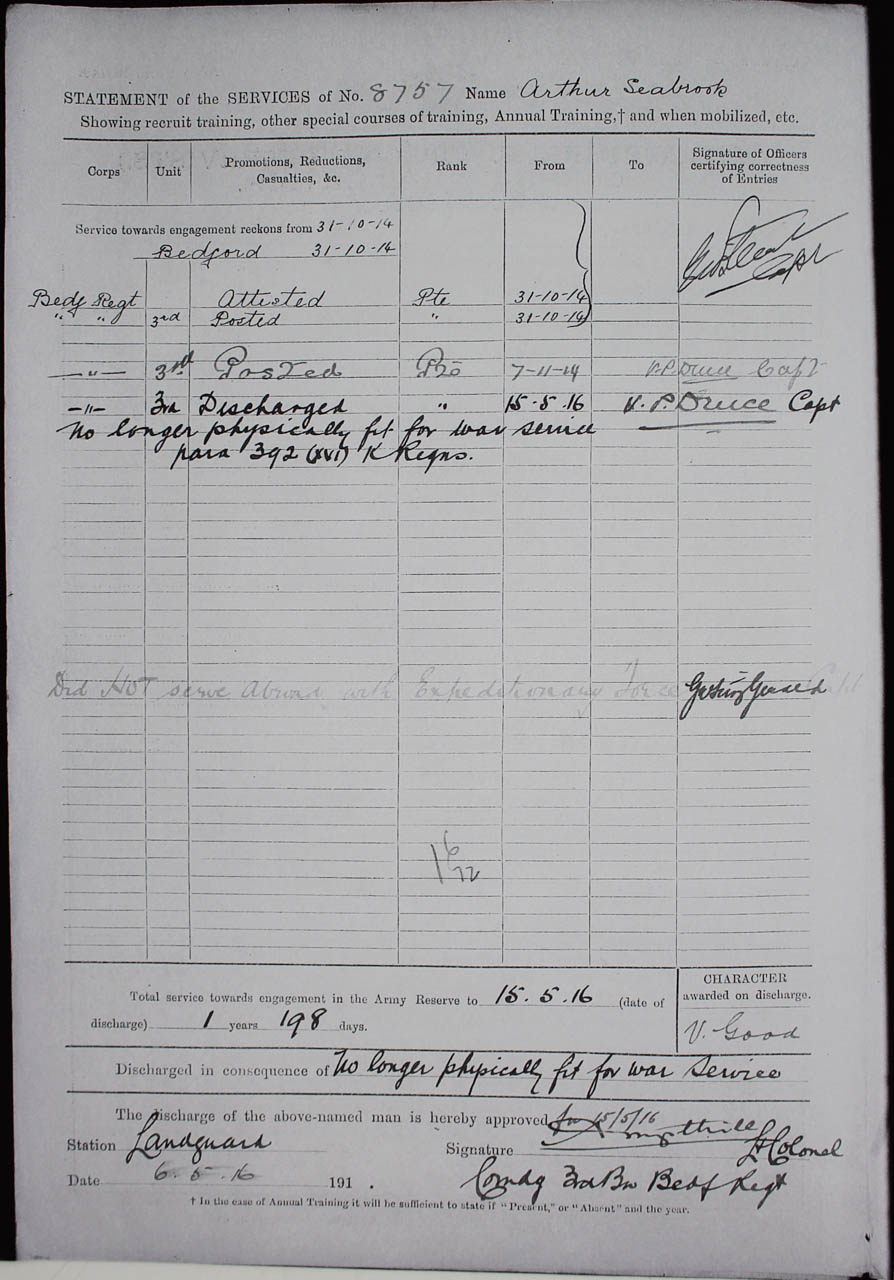 STATEMENT of the SERVICES of No. 8757 Name Arthur Seabrook
Showing recruit training, other special courses of training, Annual Training,† and when mobilized, etc.
Corps Unit Promotions, Reductions, Casualties, &c. Rank From To Signature of Officers certifying correctness of Entries
Service towards engagement reckons from 31-10-14
Bedford 31-10-14
Capt
Bedf Regt Attested Pte 31-10-14
" " 3rd Posted " 31-10-14
—"— 3rd Posted Pte 7-11-14 V.P. Druce Capt
—"— 3rd Discharged " 15.5.16 V. P. Druce Capt
No longer physically fit for war service
para 392 (XVI) K Regns.
Did NOT serve Abroad with Expeditionary Force
Total service towards engagement in the Army Reserve to 15.5.16 (date of
discharge) 1 years 198 days.
CHARACTER
awarded on discharge.
V. Good
Discharged in consequence of No longer physically fit for war service
The discharge of the above-named man is hereby approved for 15/5/16
Station Landguard Signature Lt Colonel
Date 6.5.16 191 . Comdg 3rd Bn Bedf Regt
† In the case of Annual Training it will be sufficient to state if "Present," or "Absent" and the year.